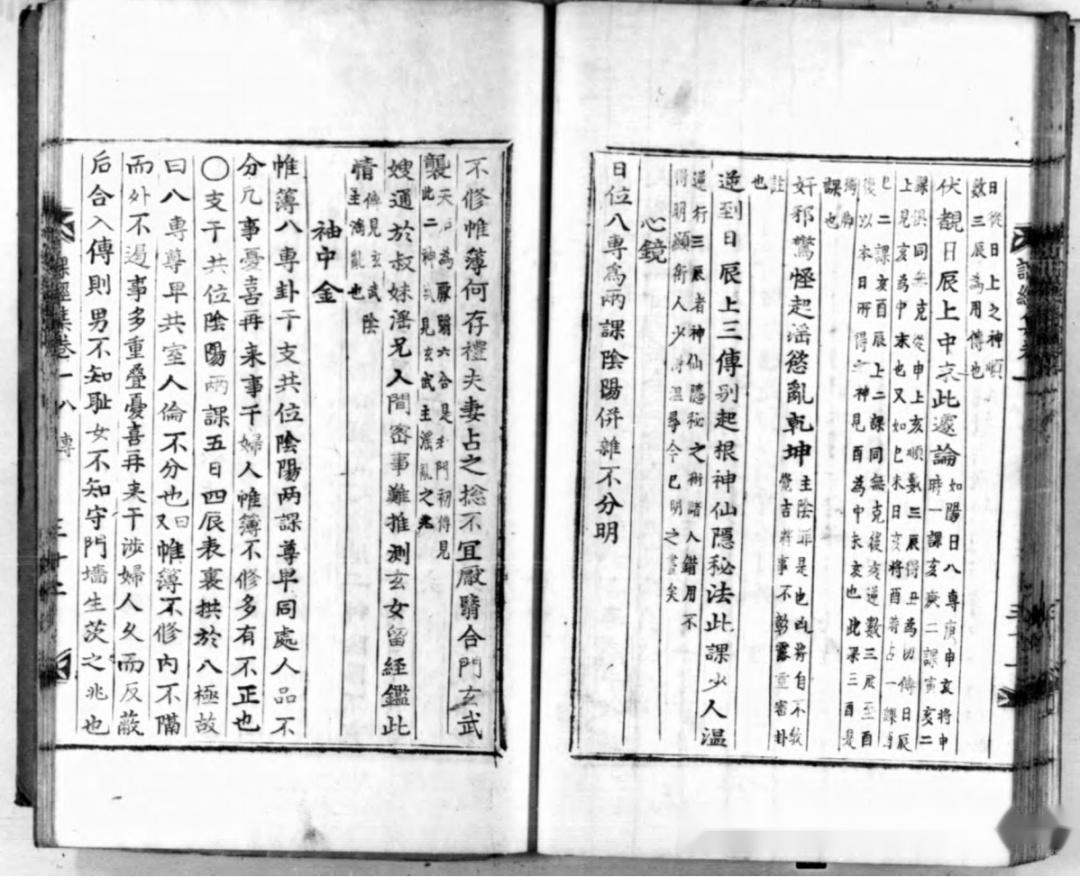 日從日上之神順
數三辰為用傳也
伏覩日辰上中末此邃論如陽日八專庚申亥將申
時一課亥庚二課寅亥二
課俱同無克從申上亥順數三辰得丑為初傳日辰
上見亥為中末也又如巳未日亥將酉時占一課
巳二課亥酉辰上二課同無克後亥逆數三辰至酉
後以本日所得之神見酉為中末亥也此課三酉是
獨
課也
奸邪驚怪起滛慾亂乾坤主陰罪是也凶將自不
吉將事不重審卦
註
也
逆到日辰上三傳别起根神仙隱秘法此課少人温
逆行三辰者神仙隱秘之術諸人錯用不
得明顯術人少得温尋今已明之矣
心鏡
日位八專為兩課陰陽併雜不分明
不修帷薄何存禮夫妻占之捴不宜厭翳合門玄武
襲天為厭翳六合是門初得見
此二神見玄武主滛亂之
嫂通於叔妹滛兄人間密事難推測玄女留經鑑此
情傳見玄武陰
主滛亂也
袖中金
帷簿八專卦干支共位陰陽两課尊卑同處人品不
分凡事憂喜再来事干婦人帷簿不修多有不正也
〇支干共位陰陽两課五日四辰表裏拱於八極故
曰八專尊卑共室人倫不分也又曰帷簿不修内不隔
而外不遏事多重叠憂喜再来干涉婦人久而反蔽
后合入傳則男不知恥女不知守門墻生茨之兆也
課經集卷一 八專 三十二